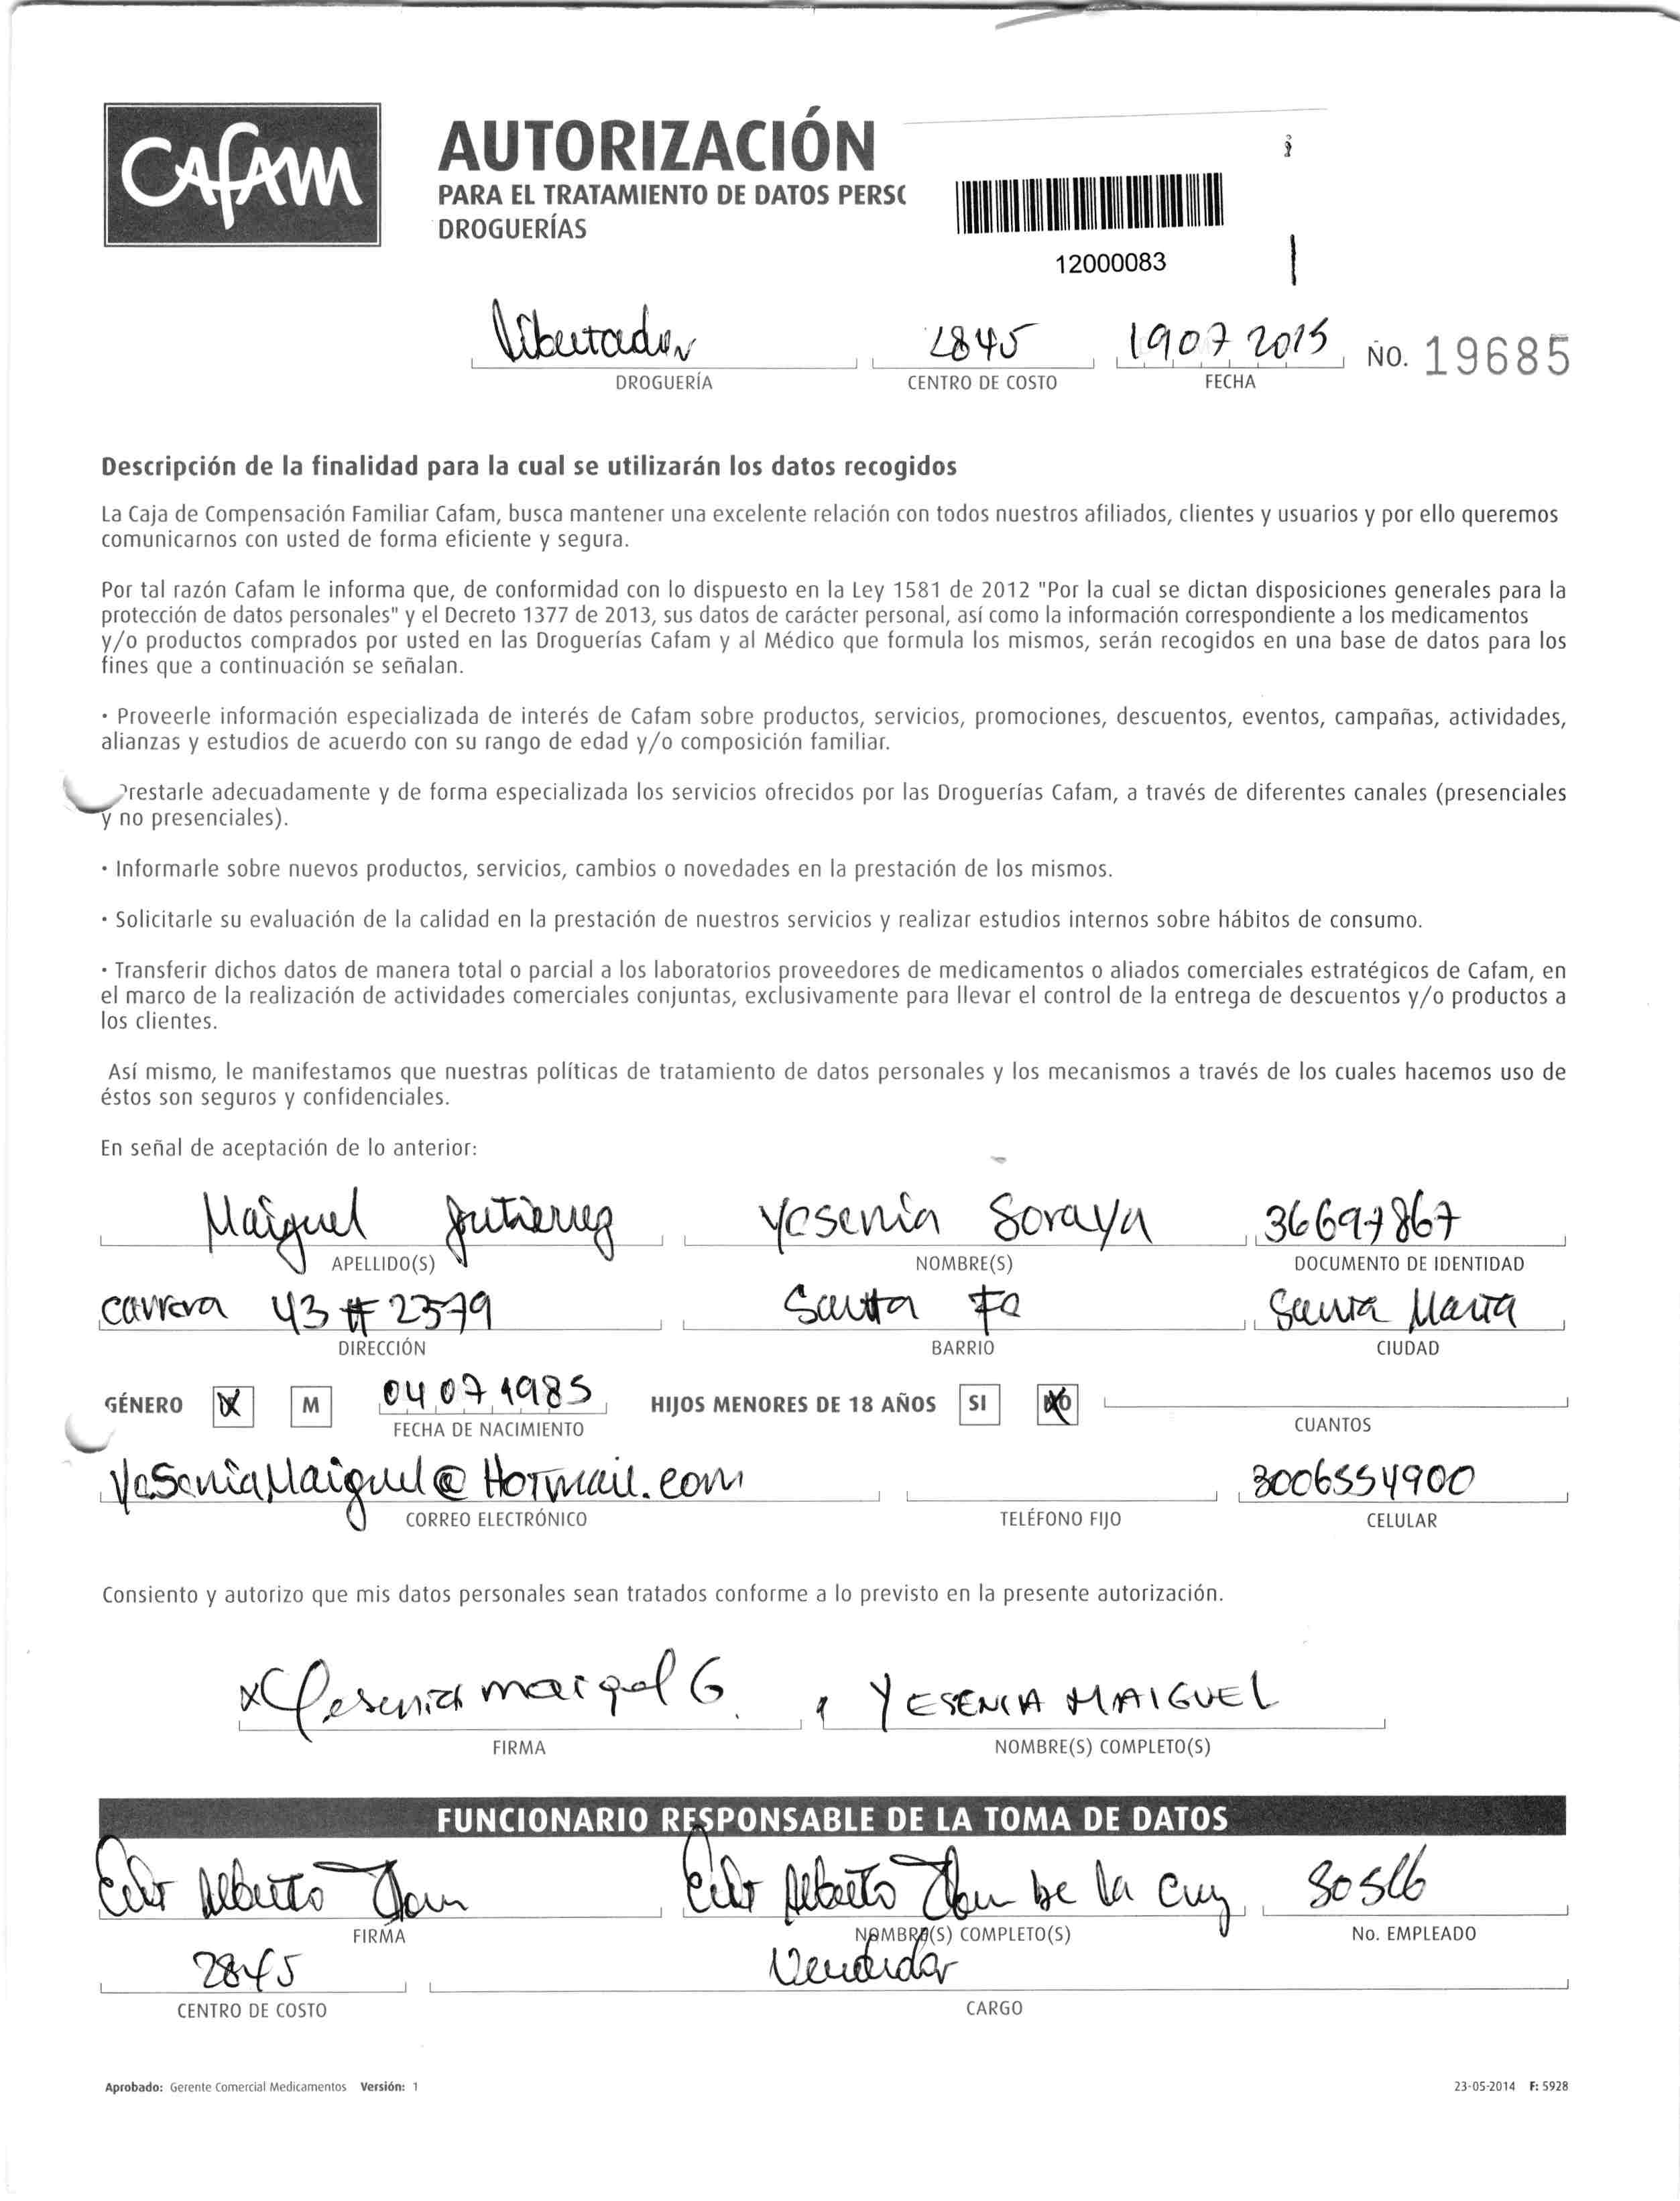 CAFAM
AUTORIZACIÓN
PARA EL TRATAMIENTO DE DATOS PERSO
DROGUERÍAS
12000083
Libertador 2845 1907 2015 NO. 19685
DROGUERÍA CENTRO DE COSTO FECHA
Descripción de la finalidad para la cual se utilizarán los datos recogidos
La Caja de Compensación Familiar Cafam, busca mantener una excelente relación con todos nuestros afiliados, clientes y usuarios y por ello queremos
comunicarnos con usted de forma eficiente y segura.
Por tal razón Cafam le informa que, de conformidad con lo dispuesto en la Ley 1581 de 2012 "Por la cual se dictan disposiciones generales para la
protección de datos personales" y el Decreto 1377 de 2013, sus datos de carácter personal, así como la información correspondiente a los medicamentos
y/o productos comprados por usted en las Droguerías Cafam y al Médico que formula los mismos, serán recogidos en una base de datos para los
fines que a continuación se señalan.
• Proveerle información especializada de interés de Cafam sobre productos, servicios, promociones, descuentos, eventos, campañas, actividades,
alianzas y estudios de acuerdo con su rango de edad y/o composición familiar.
Prestarle adecuadamente y de forma especializada los servicios ofrecidos por las Droguerías Cafam, a través de diferentes canales (presenciales
y no presenciales).
• Informarle sobre nuevos productos, servicios, cambios o novedades en la prestación de los mismos.
• Solicitarle su evaluación de la calidad en la prestación de nuestros servicios y realizar estudios internos sobre hábitos de consumo.
• Transferir dichos datos de manera total o parcial a los laboratorios proveedores de medicamentos o aliados comerciales estratégicos de Cafam, en
el marco de la realización de actividades comerciales conjuntas, exclusivamente para llevar el control de la entrega de descuentos y/o productos a
los clientes.
Así mismo, le manifestamos que nuestras políticas de tratamiento de datos personales y los mecanismos a través de los cuales hacemos uso de
éstos son seguros y confidenciales.
En señal de aceptación de lo anterior:
Maiguel Gutierrez Yesenia Soraya 36697867
APELLIDO(S) NOMBRE(S) DOCUMENTO DE IDENTIDAD
carrera 43 # 2379 Santa Fe Santa Marta
DIRECCIÓN BARRIO CIUDAD
GÉNERO X M 04 07 1985 HIJOS MENORES DE 18 AÑOS SI NO
FECHA DE NACIMIENTO CUANTOS
YeseniaMaiguel@Hotmail.com 3006554900
CORREO ELECTRÓNICO TELÉFONO FIJO CELULAR
Consiento y autorizo que mis datos personales sean tratados conforme a lo previsto en la presente autorización.
x Yesenia maiguel G. YESENIA MAIGUEL
FIRMA NOMBRE(S) COMPLETO(S)
FUNCIONARIO RESPONSABLE DE LA TOMA DE DATOS
Alberto Alberto De la Cruz
FIRMA NOMBRE(S) COMPLETO(S) No. EMPLEADO
2845 Vendedor
CENTRO DE COSTO CARGO
Aprobado: Gerente Comercial Medicamentos Versión: 1 23-05-2014 F: 5928